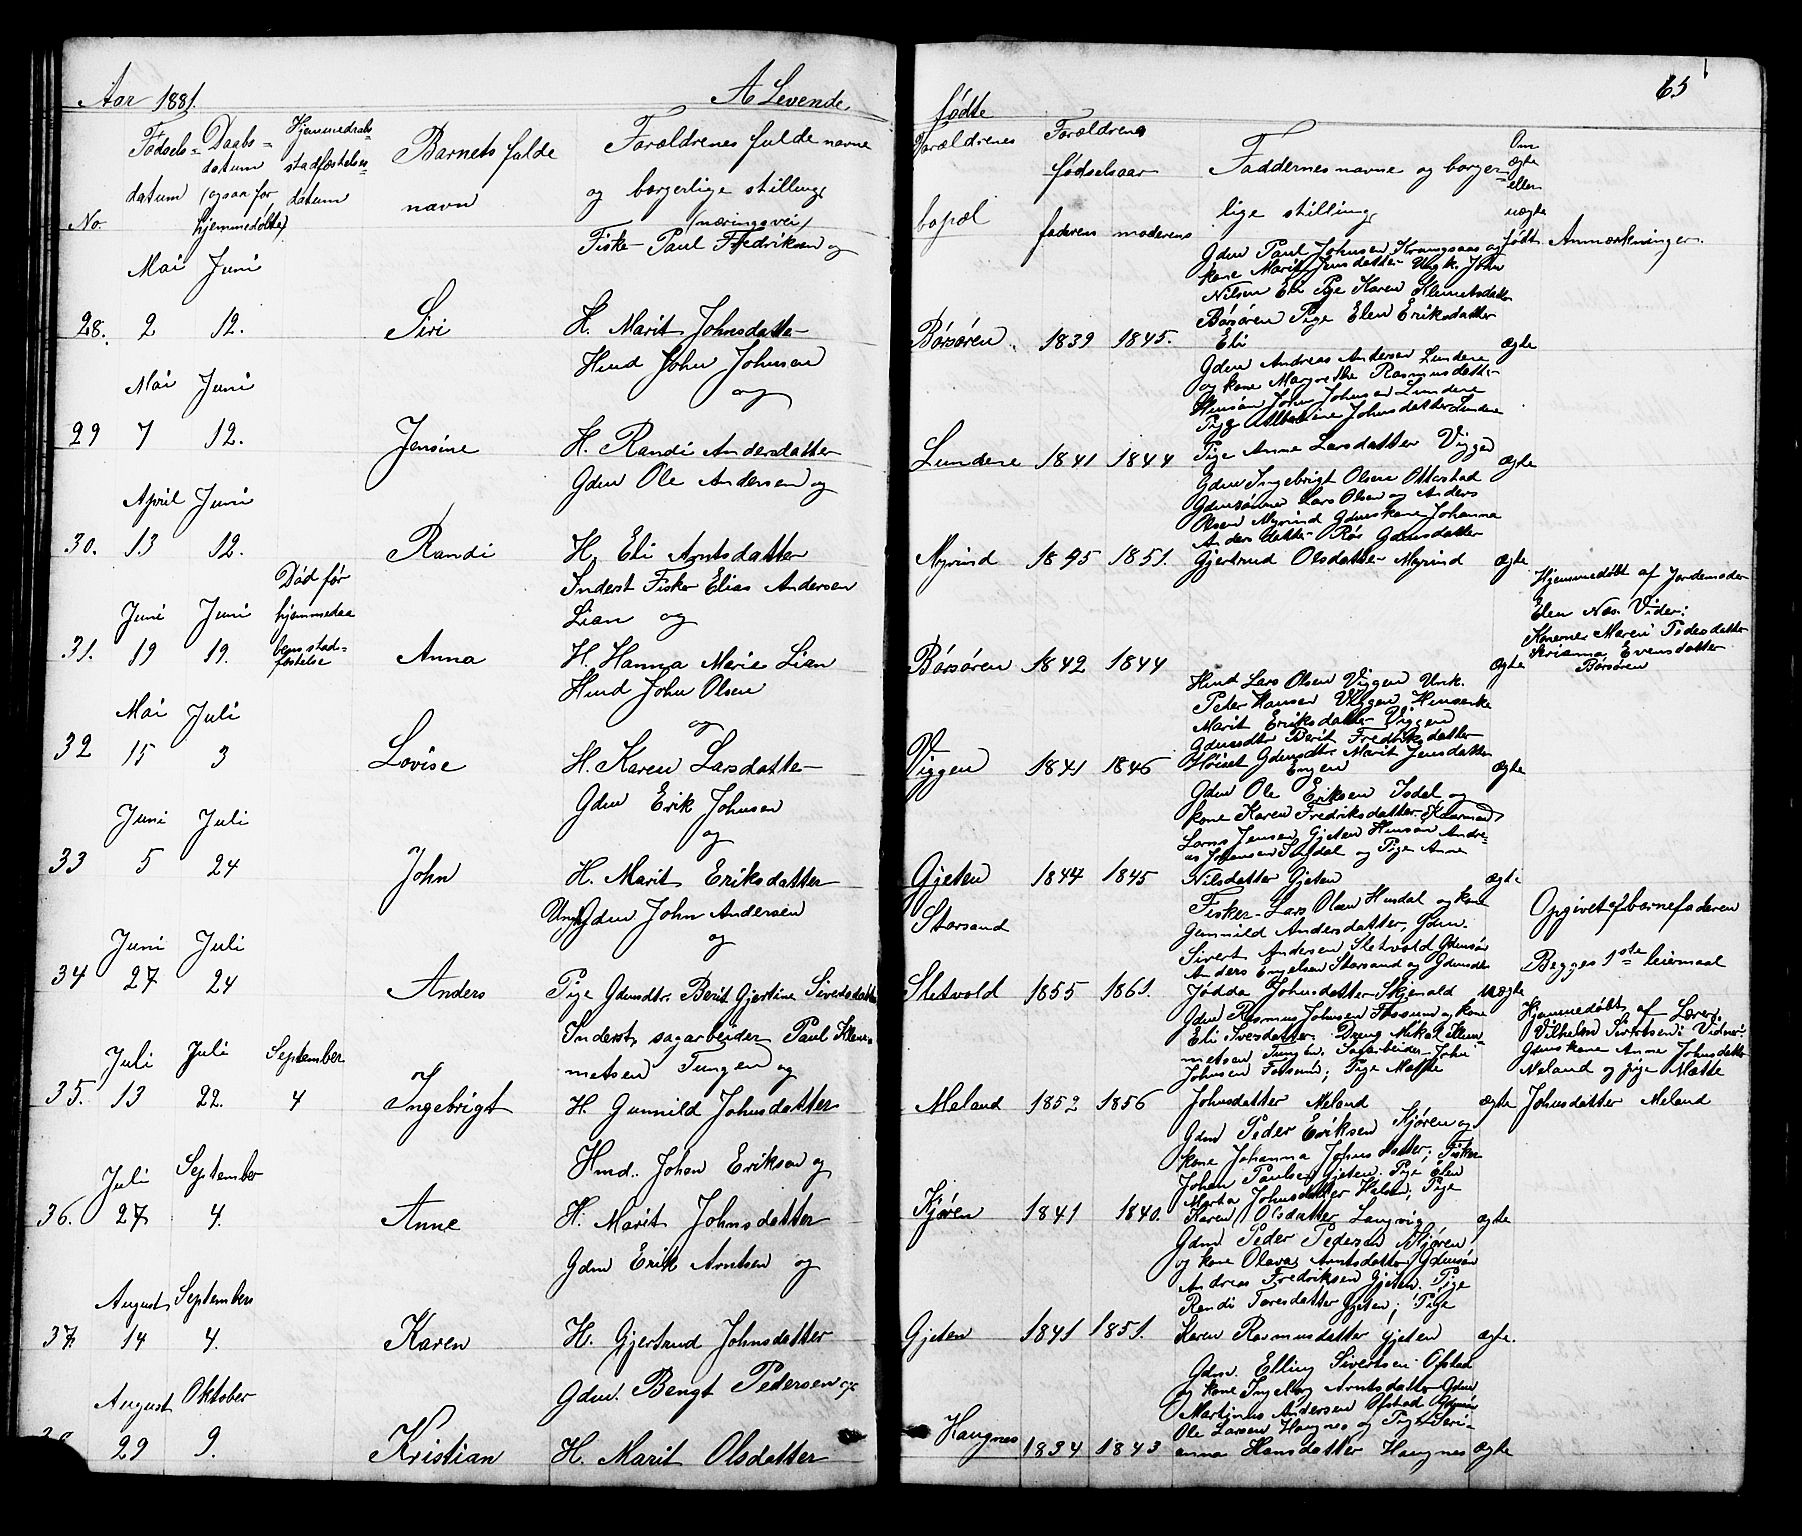 Aar 1881.
A Levende
No.
Fødsels-
datum
Daabs-
datum
(ogsaa for
hjemmedøbte)
Hjemmedaabs-
stadfæstelses-
datum
Barnets fulde
navn
Forældrenes fulde navne
og borgerlige stilling
(næringsvei)
Mai Juni
Fisker Paul Fredriksen og
28. 2 12. Siri H. Marit Johnsdatter
Mai Juni
Hmd John Johnsen
og
29 7 12. Jensine H. Randi Andersdatter
April Juni
Gdm Ole Andersen og
30. 13 12. Randi H. Eli Arntsdatter
Død før
hjemmedaa
bens stad-
fæstelse
Juni Juni
Inderst Fisker Elias Andersen
Lian og
31. 19 19. Anna H. Hanna Marie Lian
Mai Juli
Hmd John Olsen
og
32 15 3 Lovise H. Karen Larsdatter
Juni Juli
Gdm Erik Johnsen
og
33 5 24 John H. Marit Eriksdatter
Juni Juli
Ungk. Gdm John Andersen
og
34 27 24 Anders Pige Gdmdtr. Berit Gjertine Sivertsdatter
Juli Juli September
Inderst, sagarbeider Paul Klem-
metsen Tungen og
35. 13 22. 4 Ingebrigt H. Gunnild Johnsdatter
Juli September
Hmd. Johan Eriksen og
36. 27 4. Anne H. Marit Johnsdatter
August September
Gdm Erik Arntsen og
37. 14 4. Karen H. Gjertrud Johnsdatter
August Oktober
Gdm. Bengt Pedersen og
29 9. Kristian H. Marit Olsdatter
65
fødte
Forældrenes
bopæl
Forældrenes
fødselsaar
faderens moderens
Faddernes navne og borger-
lige stilling
Om
ægte
eller
uægte
født
Anmærkninger.
Gdm Paul Johnsen og
kone Marit Jensdatter Ungk. John
Nilsen Eli Pige Karen Klemetsdatter
Børsøren Pige Elen Eriksdatter
Børsøren 1839 1845. Eli ægte
Gdm Andreas Andersen Lundene
og kone Margrethe Rasmusdatter
John Johnsen Lundene
Pige Johnsdatter Lundene
Lundene 1841 1844 Pige Anne Larsdatter Viggen ægte
Gdm Ingebrigt Olsen Otterstad
Gdmsønner Lars Olsen og Anders
Olsen Myrind Gdmskone Johanna
Andersdatter Gdmsdatter
Myrind 1845 1851. Gjertrud Olsdatter Myrind ægte
Hjemmedøbt af Jordemoder
Elen Næs. Viden:
Konerne Maren Pedersdatter
Evensdatter
Børsøren
Børsøren 1842 1844 ægte
Hmd Lars Olsen Viggen Ungk.
Peter Hansen Viggen
Marit Eriksdatter Viggen
Gdmsdtr Berit Fredriksdatter
Gdmsdtr. Marit Jensdatter
Viggen 1841 1846 Engen ægte
Gdm Ole Eriksen og
kone Karen Fredriksdatter
Jensen Gjeten Andre-
as Johansen og Pige Anne
Gjeten 1844 1845 Nilsdatter Gjeten ægte
Storsand
Fisker Lars Olsen Husdal og kone
Gunnild Andersdatter, Gdm.
Sivert Andersen Sletvold Gdmsøn
Anders Engelsen Storsand og Gdmsdtr
Opgivet af barnefaderen
Begges 1ste leiermaal
Sletvold 1855 1861. Jødda Johnsdatter Skjenald uægte
Gdm Rasmus Johnsen Fossum og kone
Eli Dreng Mikal Klem-
metsen Tungen, Sagarbeider John
Johnsen Fossum; Pige Mette
Hjemmedøbt af Lærer
Vilhelm Sivertsen: Vidner:
Gdmskone Anne Johnsdatter
Meland og pige Mette
Meland 1852 1856 Johnsdatter Meland ægte Johnsdatter Meland
Gdm Peder Eriksen Kjøren og
kone Johanna Johnsdatter; Fisker
Johan Paulsen Gjeten: Pige Elen
Marta Johnsdatter Pige
Kjøren 1841 1840. Karen Olsdatter Langvig ægte
Gdm Peder Pedersen Kjøren,
og kone Olava Arntsdatter, Gdmsøn
Andreas Fredriksen Gjeten. Pige
Randi Toresdatter Gjeten; Pige
Gjeten 1841 1851. Karen Rasmusdatter gjeten ægte.
Gdm. Elling Sivertsen Ofstad
og kone Ingeborg Arntsdatter Gdm
Martinus Andersen Ofstad Gdmsøn
Ole Larsen Haugnes og Pige Seri-
Haugnes 1834 1843 anna Hansdatter Haugnes ægte